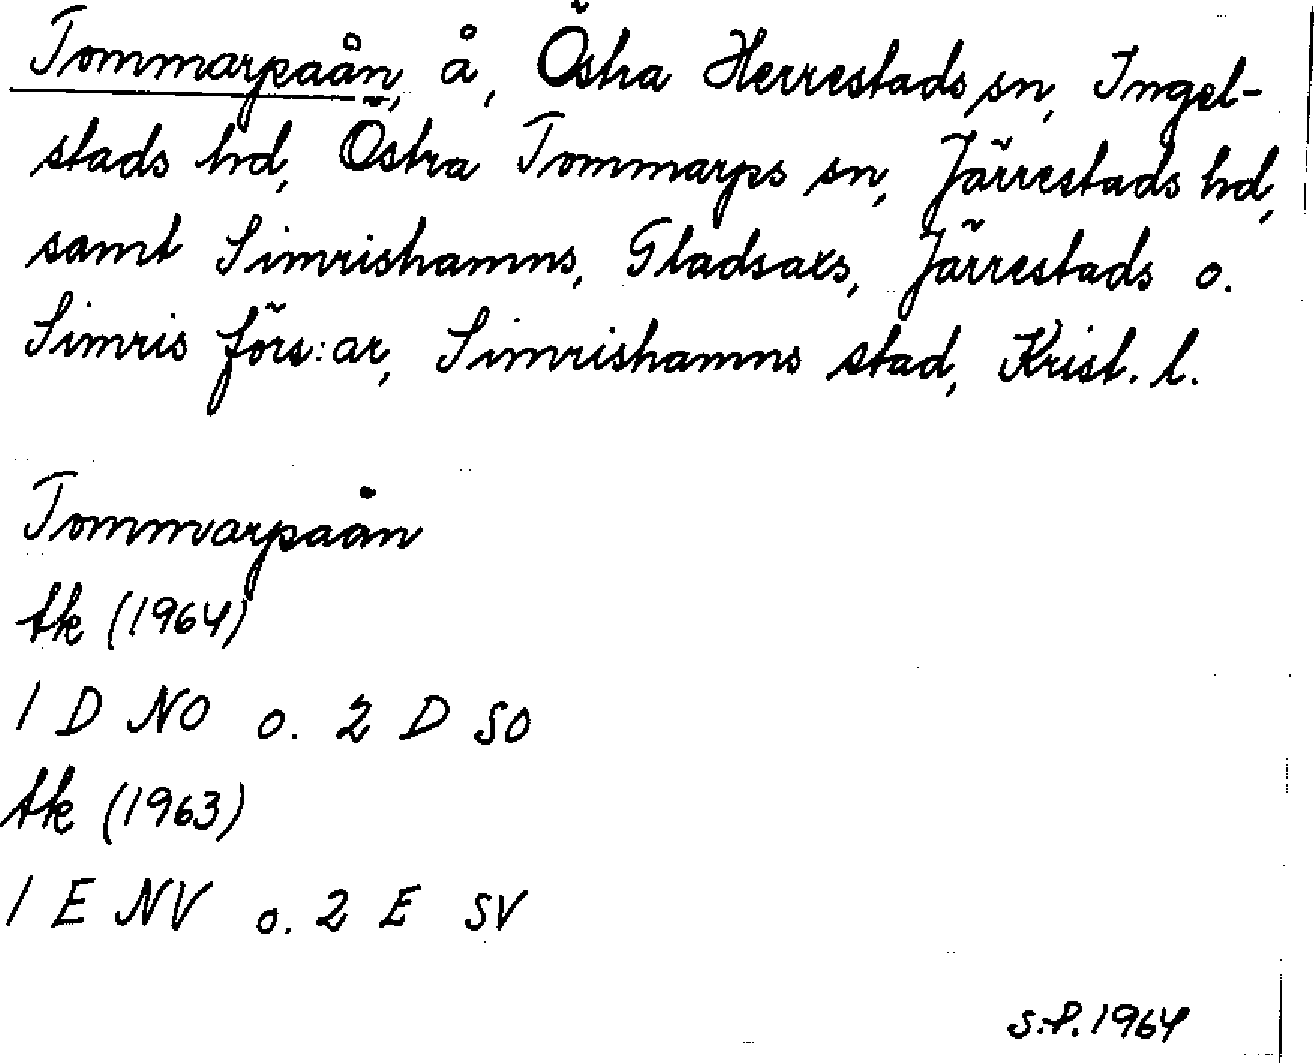 Tommarpaån, å, Östra Herrestads sn, Ingel-
stads hd, Östra Tommarps sn, Järrestads hd,
samt Simrishamns, Gladsaxs, Järrestads o.
Simris förs:ar, Simrishamns stad, Krist. l.
Tommarpaån
tk (1964)
1 D NO o. 2 D SO
tk (1963)
1 E NV o. 2 E SV
S.P. 1964